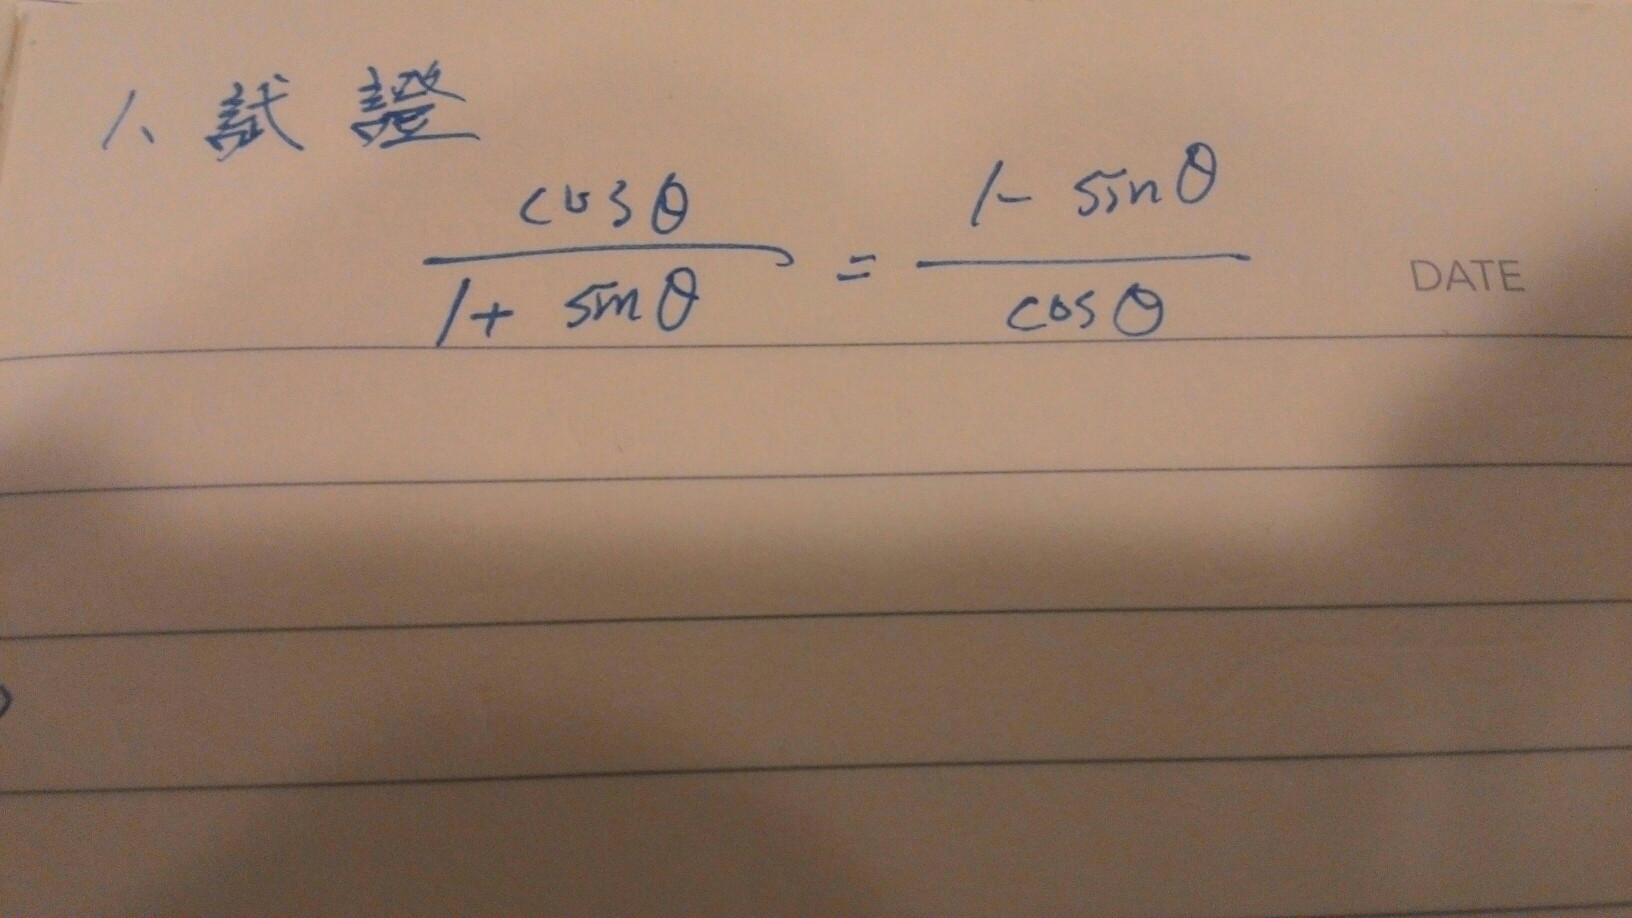 1、試證
cosθ / 1+ sinθ = 1- sinθ / cosθ
DATE